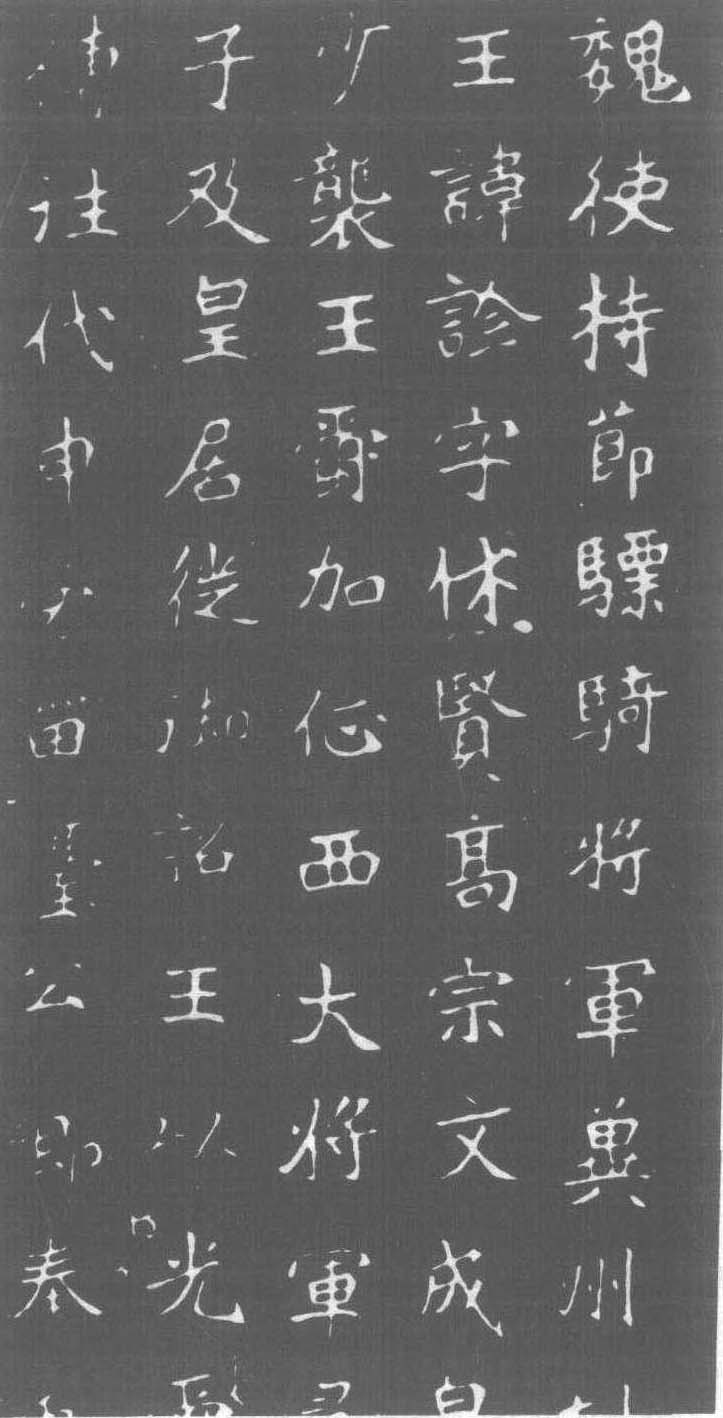 魏使持節驃騎將軍兾州
王諱詮字休賢高宗文成皇
少襲王爵加征西大將軍
子及皇居徙御詔王以光
代申留臺公即奉